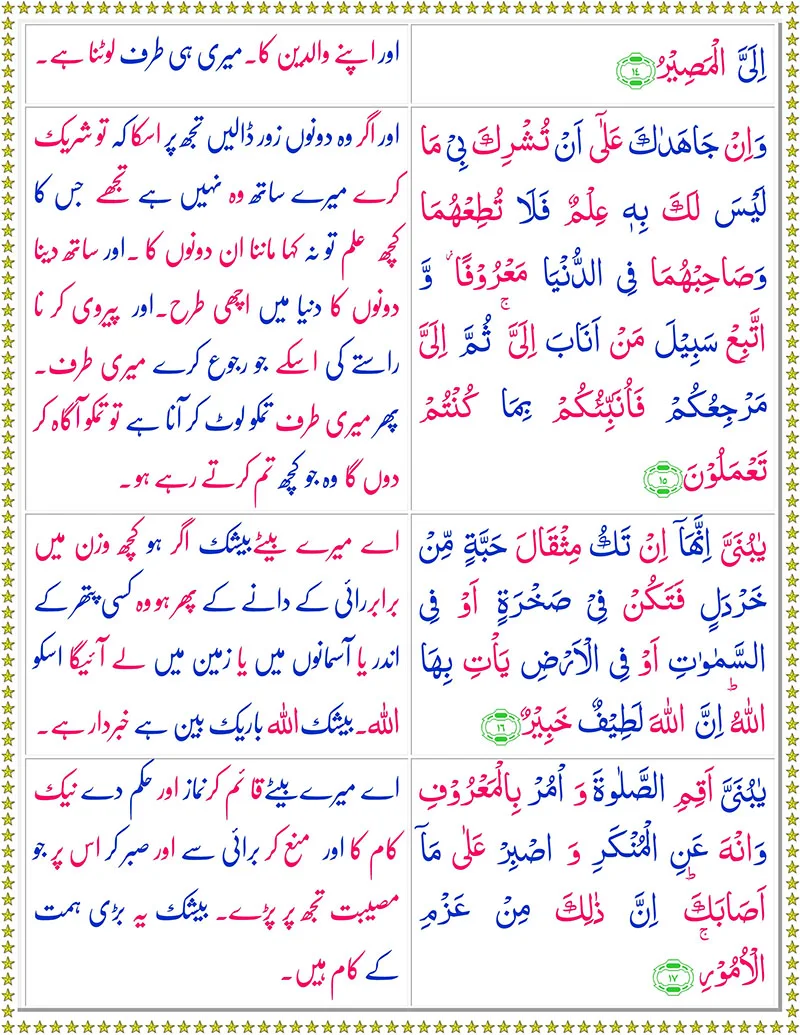 اِلَیَّ الْمَصِیْرُ ﴿۱۴﴾
اور اپنے والدین کا۔ میری ہی طرف لوٹنا ہے۔
وَاِنْ جَاهَدٰكَ عَلٰۤی اَنْ تُشْرِكَ بِیْ مَا
لَیْسَ لَكَ بِهٖ عِلْمٌ فَلَا تُطِعْهُمَا
وَصَاحِبْهُمَا فِی الدُّنْیَا مَعْرُوْفًا ؗ وَّ
اتَّبِعْ سَبِیْلَ مَنْ اَنَابَ اِلَیَّ ۚ ثُمَّ اِلَیَّ
مَرْجِعُكُمْ فَاُنَبِّئُكُمْ بِمَا كُنْتُمْ
تَعْمَلُوْنَ ﴿۱۵﴾
اور اگر وہ دونوں زور ڈالیں تجھ پر اسکا کہ تو شریک
کرے میرے ساتھ وہ نہیں ہے تجھے جس کا
کچھ علم تو نہ کہا ماننا ان دونوں کا ۔اور ساتھ دینا
دونوں کا دنیا میں اچھی طرح۔اور پیروی کر نا
راستے کی اسکے جو رجوع کرے میری طرف۔
پھر میری طرف تمکو لوٹ کر آنا ہے تو تمکو آگاہ کر
دوں گا وہ جو کچھ تم کرتے رہے ہو۔
یٰبُنَیَّ اِنَّهَاۤ اِنْ تَكُ مِثْقَالَ حَبَّةٍ مِّنْ
خَرْدَلٍ فَتَكُنْ فِیْ صَخْرَةٍ اَوْ فِی
السَّمٰوٰتِ اَوْ فِی الْاَرْضِ یَاْتِ بِهَا
اللّٰهُ ؕ اِنَّ اللّٰهَ لَطِیْفٌ خَبِیْرٌ ﴿۱۶﴾
اے میرے بیٹے بیشک اگر ہو کچھ وزن میں
برابر رائی کے دانے کے پھر ہو وہ کسی پتھر کے
اندر یا آسمانوں میں یا زمین میں لے آئیگا اسکو
اللہ۔ بیشک اللہ باریک بین ہے خبردار ہے۔
یٰبُنَیَّ اَقِمِ الصَّلٰوةَ وَ اْمُرْ بِالْمَعْرُوْفِ
وَانْهَ عَنِ الْمُنْكَرِ وَ اصْبِرْ عَلٰی مَاۤ
اَصَابَكَ ؕ اِنَّ ذٰلِكَ مِنْ عَزْمِ
الْاُمُوْرِ ۚ ﴿۱۷﴾
اے میرے بیٹے قائم کر نماز اور حکم دے نیک
کام کا اور منع کر برائی سے اور صبر کر اس پر جو
مصیبت تجھ پر پڑے۔ بیشک یہ بڑی ہمت
کے کام ہیں۔